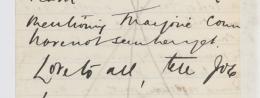 mentioning Marjorie Conn
have not seen her yet.
Love to all, tell Job